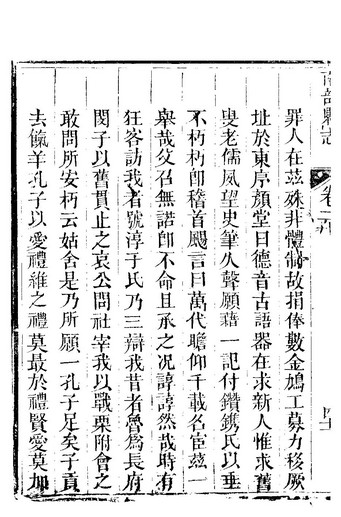 南部縣志
卷二
罪人在茲殊非體制故捐俸數金鳩工募力移厥
址於東序顏堂曰德音古語器在求新人惟求舊
叟老儒夙望史筆久聲願藉一記付鑽鐫氏以垂
不朽朽卽稽首颺言曰萬代瞻仰千載名宦茲一
舉哉父召無諾卽不命且承之況諄諄然哉時有
狂客訪我者號淳于氏乃三辯我昔者魯爲長府
閔子以舊貫止之哀公問社宰我以戰栗附會之
敢問所安朽云姑舍是乃所願一孔子足矣子貢
去餼羊孔子以愛禮維之禮莫最於禮賢愛莫加